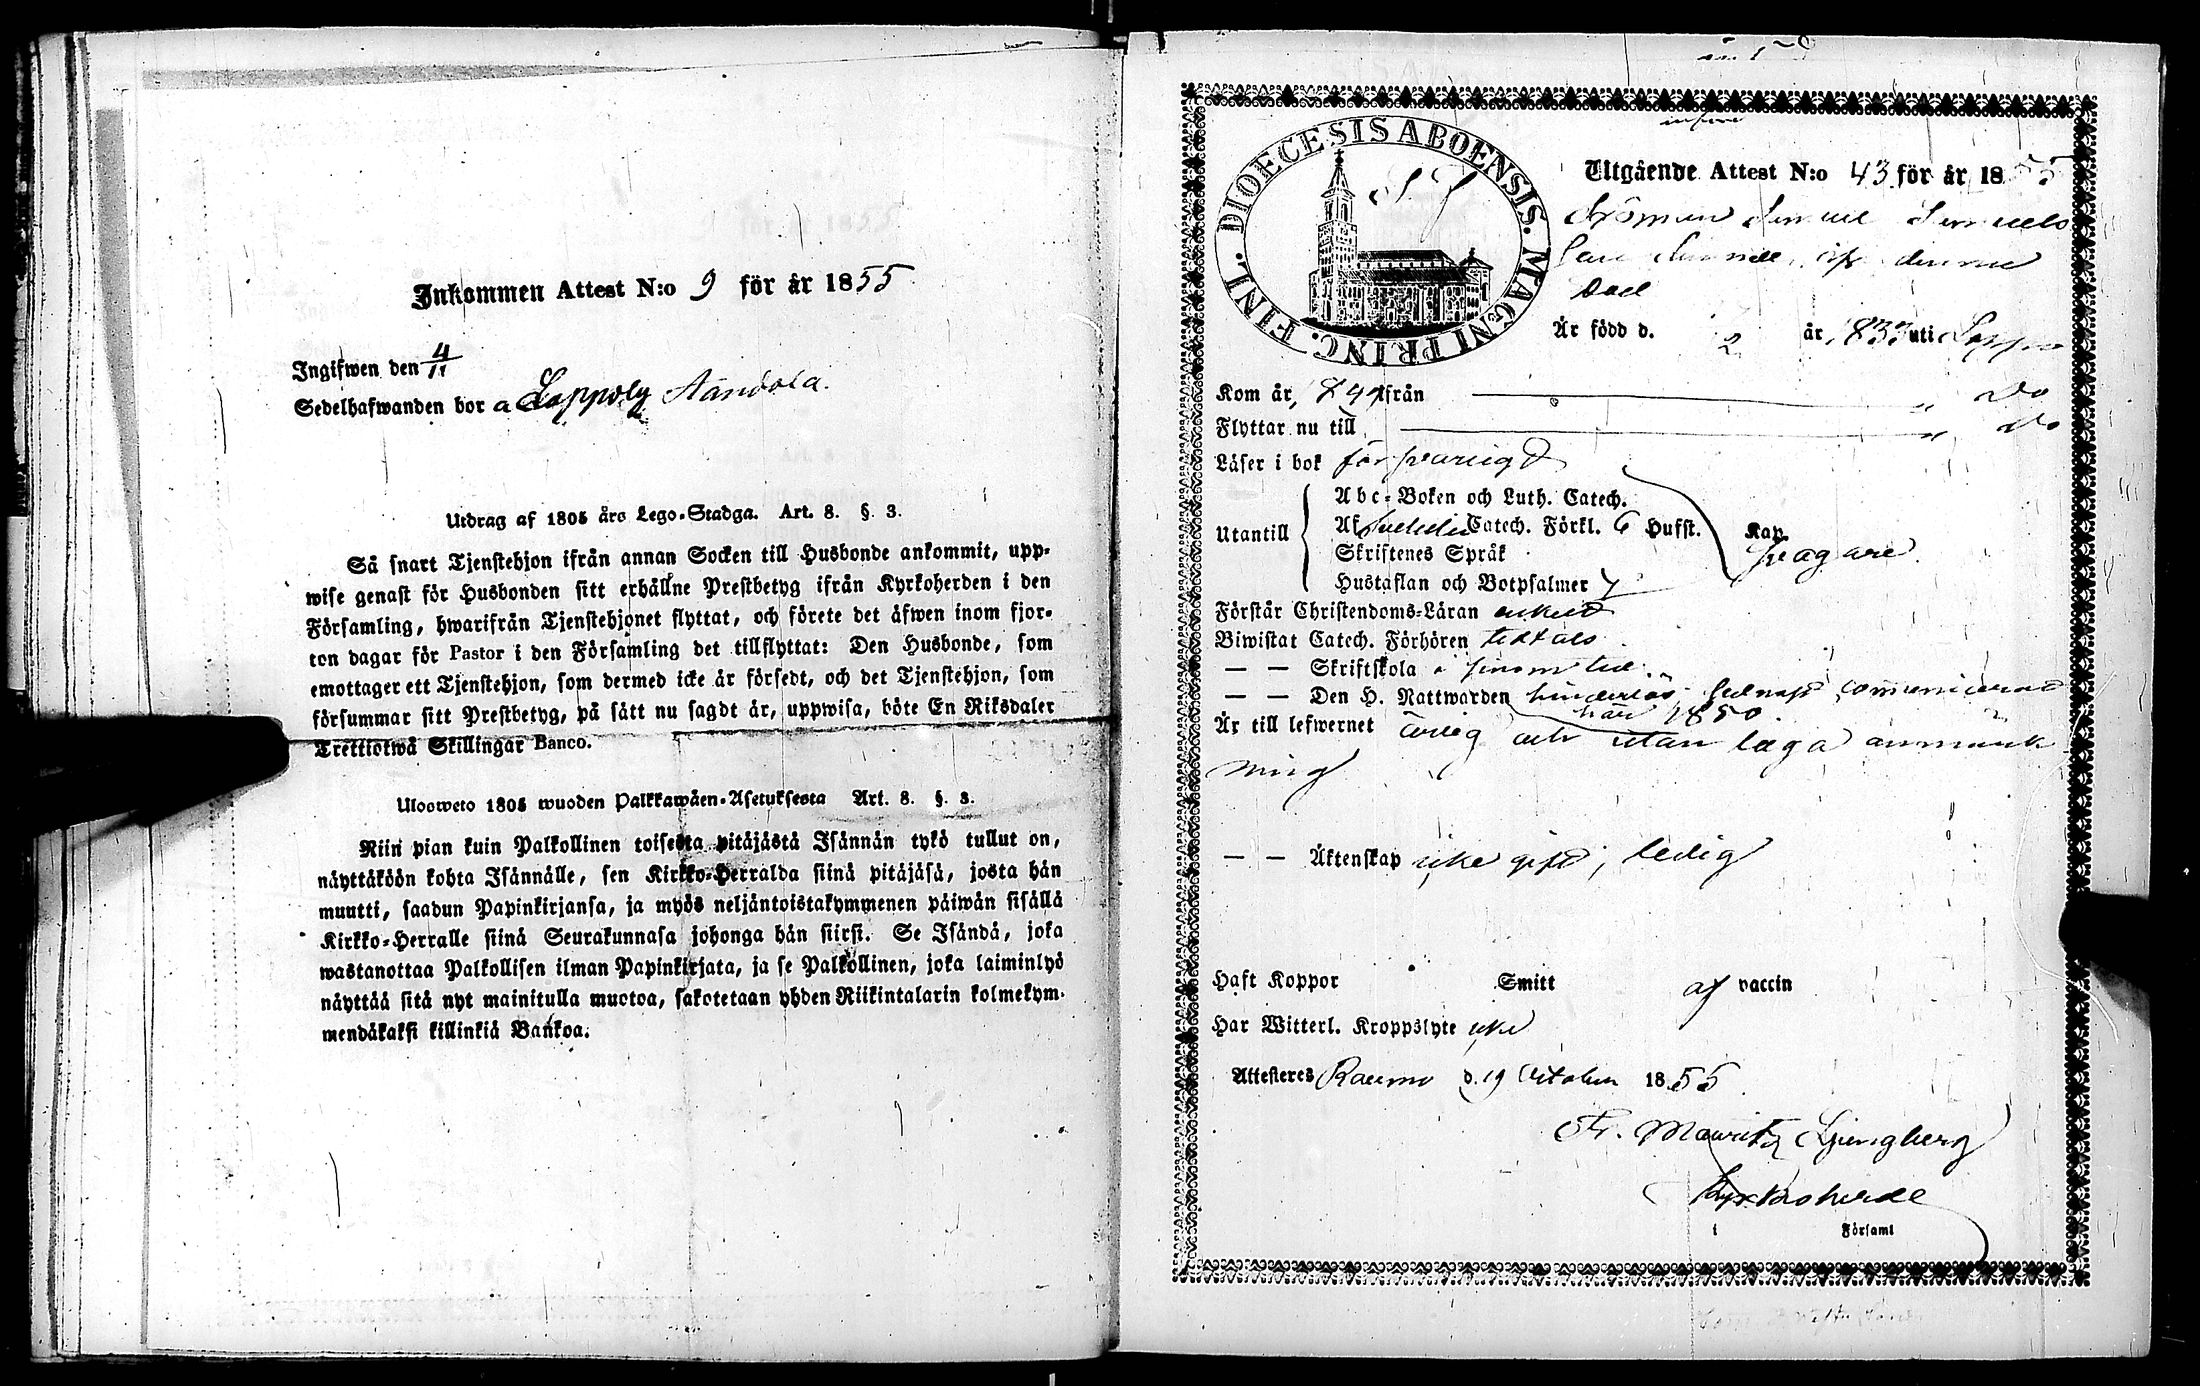 Inkommen Attest N:o 9 för år 1855
Ingifwen den 4/11
Sedelhafwanden bor a Lappoby
Utdrag af 1805 års Lego-Stadga. Art. 8. §. 3.
Så snart Tjenstehjon ifrån annan Socken till Husbonde ankommit, upp-
wise genast för Husbonden sitt erhållne Prestbetyg ifrån Kyrkoherden i den
Församling, hwarifrån Tjenstehjonet flyttat, och förete det äfwen inom fjor-
ton dagar för Pastor i den Församling det tillflyttat: Den Husbonde, som
emottager ett Tjenstehjon, som dermed icke är försedt, och det Tjenstehjon, som
försummar sitt Prestbetyg, på sätt nu sagdt är, uppwisa, böte En Riksdaler
Trettiotwå Skillingar Banco.
Ulosweto 1805 wuoden Palkkawäen-Asetuksesta Art. 8. §. 3.
Niin pian kuin Palkollinen toisesta pitäjästä Isännän tykö tullut on,
näyttäköön kohta Isännälle, sen Kirkko-Herralda siinä pitäjäsä, josta hän
muutti, saadun Papinkirjansa, ja myös neljäntoistakymmenen päiwän sisällä
Kirkko-Herralle siinä Seurakunnasa johonga hän siirsi. Se Isändä, joka
wastanottaa Palkollisen ilman Papinkirjata, ja se Palkollinen, joka laiminlyö
näyttää sitä nyt mainitulla muotoa, sakotetaan yhden Riikintalarin kolmekym-
mendäkaksi killinkiä Bankoa.
DIOECESIS ABOENSIS. MAGNI PRINC. FINL.
Utgående Attest N:o 43 för år 1855
Är född d. 2 år 1833 uti Lappo
Kom år 1849 ifrån Do
Flyttar nu till Do
Läser i bok försvarligt
Abc-Boken och Luth. Catech.
Utantill Af Svebelii Catech. Förkl. 6 Hufst. Kap.
Skriftenes Språk svagare
Hustaflan och Botpsalmer 7
Förstår Christendoms-Läran enkelt
Biwistat Catech. Förhören
— — Skriftskola i sinom tid
— — Den H. Nattwarden hinderlös. sednast communicerat
här 1850.
Är till lefwernet ärlig och utan laga anmärk
ning
— — Äktenskap icke gift, ledig
Haft Koppor Smitt af vaccin
Har Witterl. Kroppslyte icke
Attesteras Raumo d. 19 October 1855
Fr. Mauritz Ljungberg
Kyrkoherde
i Församl